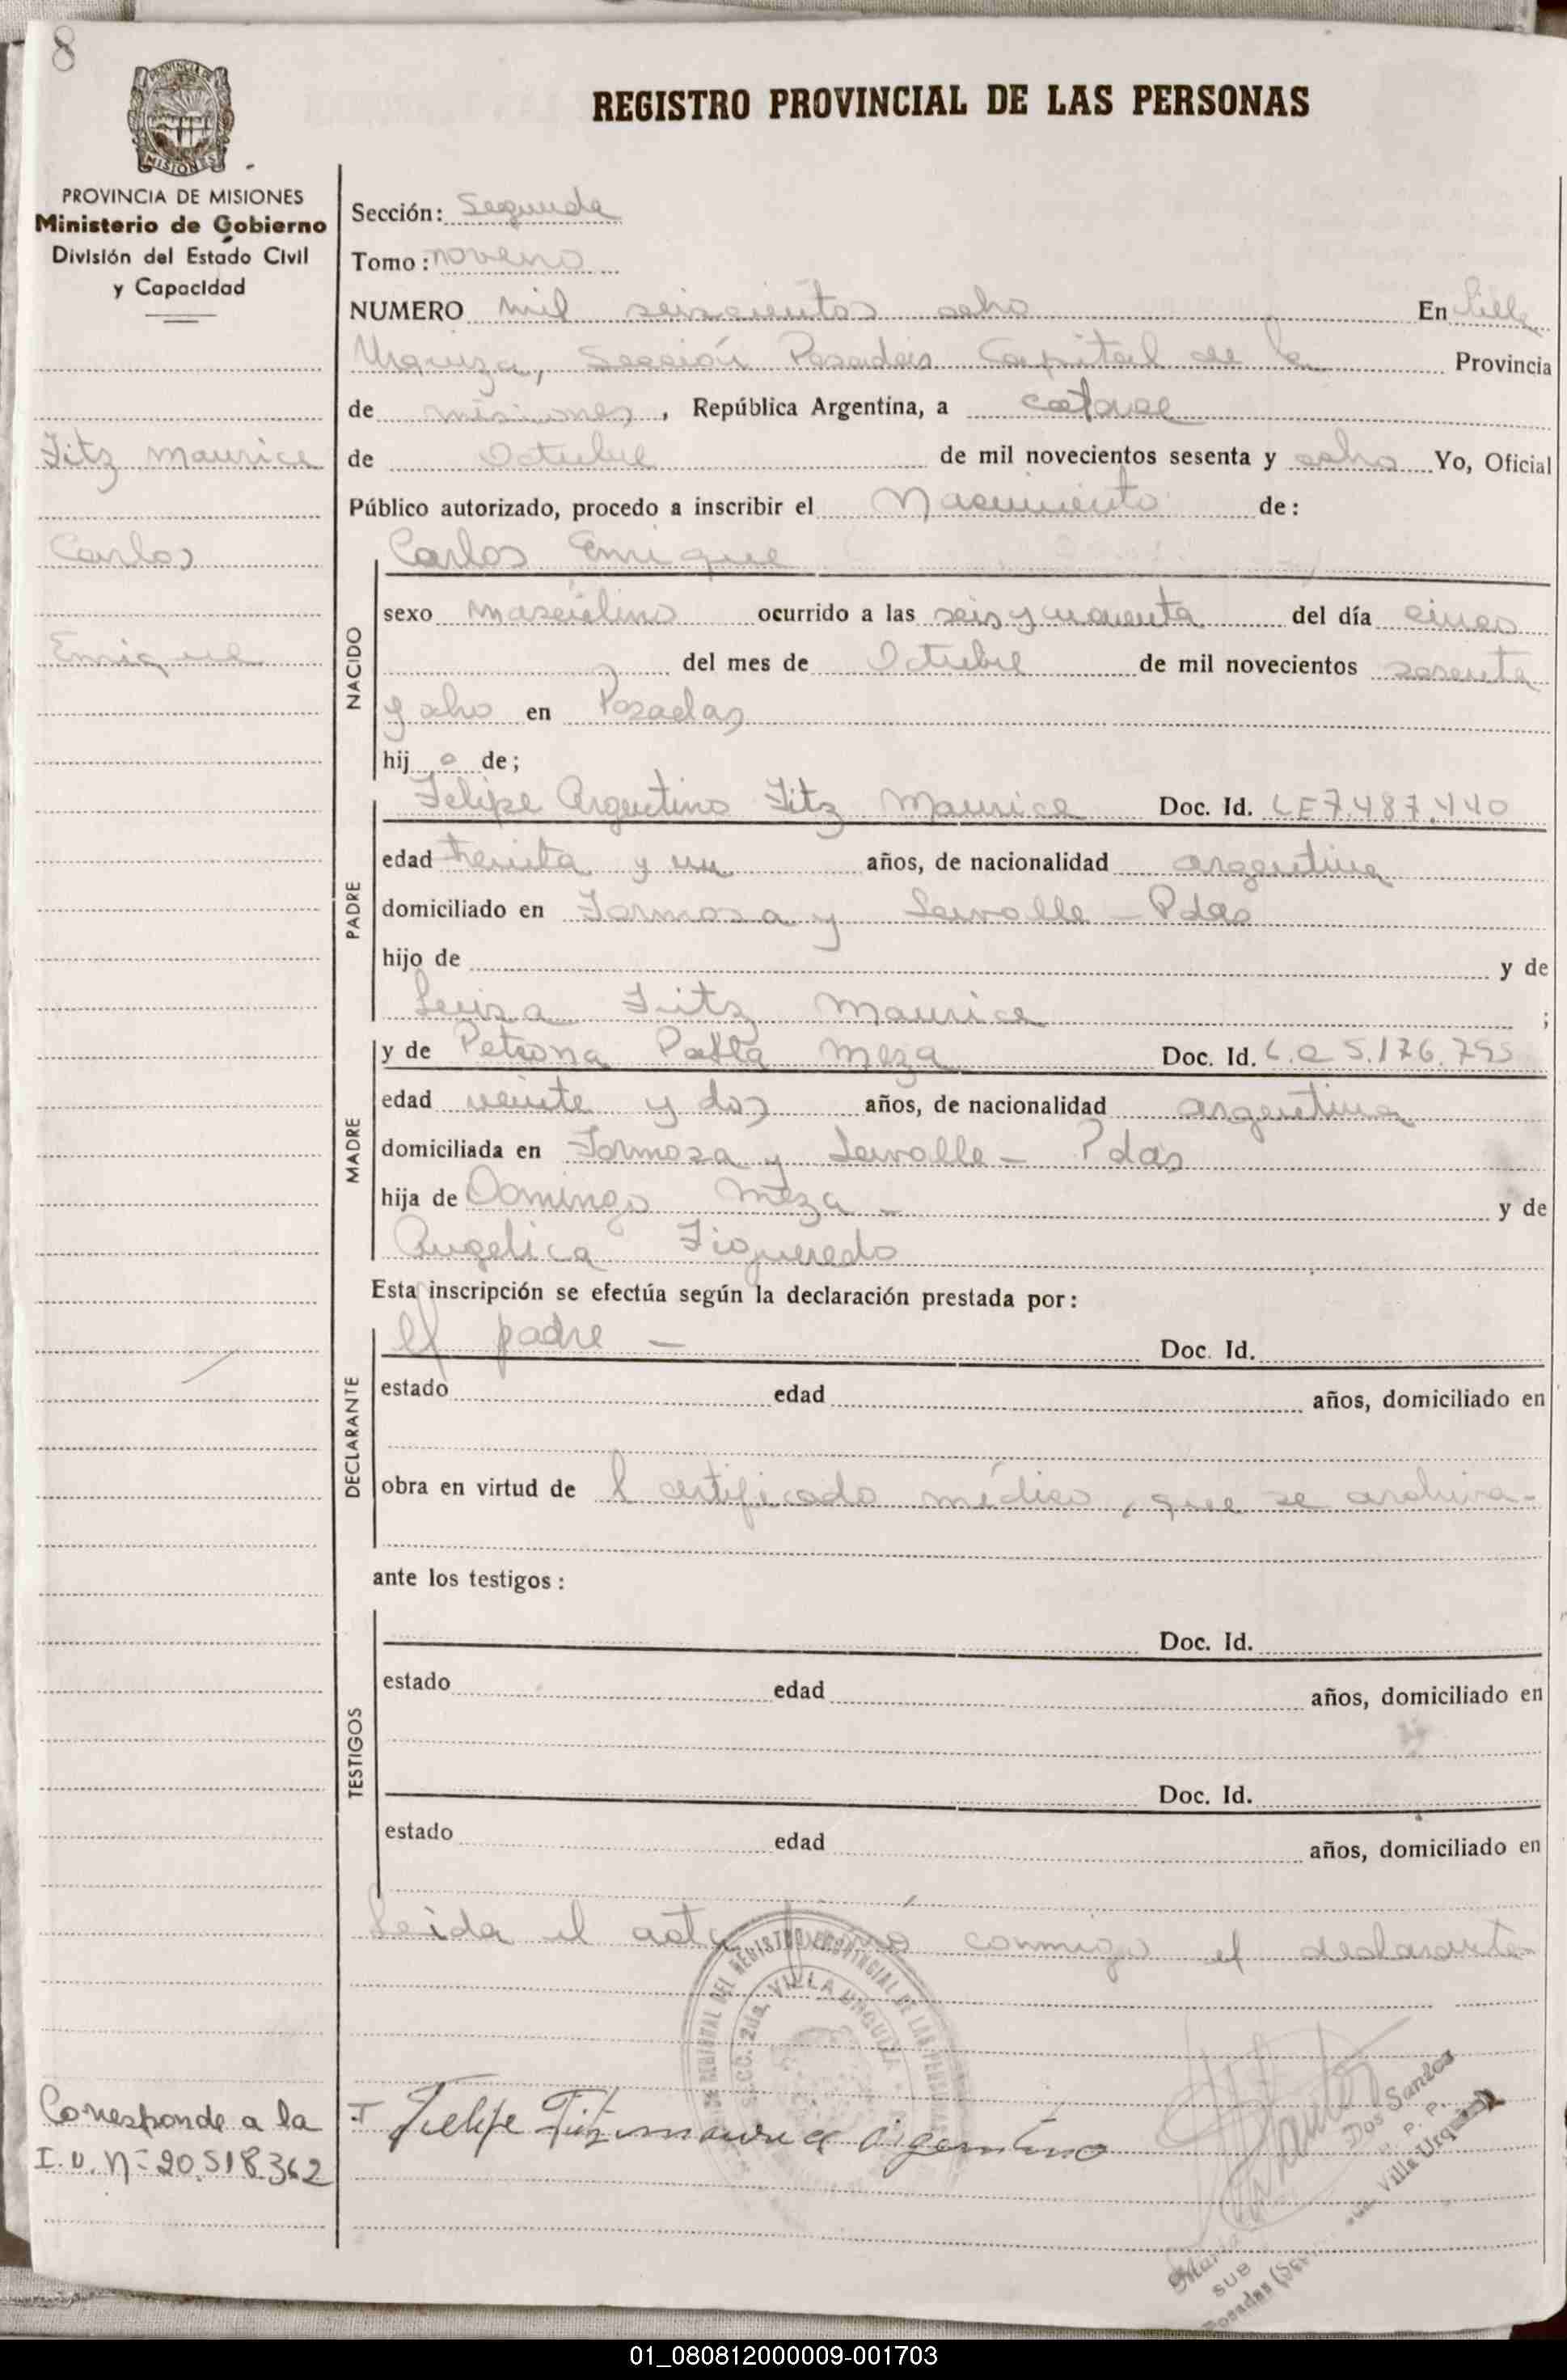 8
REGISTRO PROVINCIAL DE LAS PERSONAS
PROVINCIA DE
MISIONES
PROVINCIA DE MISIONES
Ministerio de Gobierno
División del Estado Civil
y Capacidad
Fitz Maurice
Carlos
Enrique
Sección: Segunda
Tomo: noveno
NUMERO mil seiscientos ocho En Villa
Urquiza, Sección Posadas Capital de la Provincia
de misiones, República Argentina, a catorce
de Octubre de mil novecientos sesenta y ocho Yo, Oficial
Público autorizado, procedo a inscribir el Nacimiento de:
Carlos Enrique
NACIDO
sexo masculino ocurrido a las seis y cuarenta del día cinco
del mes de Octubre de mil novecientos sesenta
y ocho en Posadas
hij o de;
PADRE
Felipe Argentino Fitz Maurice Doc. Id. LE 7.487.440
edad treinta y un años, de nacionalidad argentina
domiciliado en Formosa y Lavalle - Pdas
hijo de y de
Luisa Fitz Maurice ;
MADRE
y de Petrona Pabla Meza Doc. Id. L.C 5.176.795
edad veinte y dos años, de nacionalidad argentina
domiciliada en Formosa y Lavalle - Pdas
hija de Domingo Meza - y de
Angelica Figueredo
Esta inscripción se efectúa según la declaración prestada por:
DECLARANTE
el padre - Doc. Id.
estado edad años, domiciliado en
obra en virtud de l certificado médico, que se archiva-
ante los testigos:
TESTIGOS
Doc. Id.
estado edad años, domiciliado en
Doc. Id.
estado edad años, domiciliado en
Leida el acta firmó conmigo el declarante-
REGIONAL DEL REGISTRO PROVINCIAL DE LAS PERSONAS
SECC. 2da. VILLA URQUIZA
Corresponde a la
I.D. Nº 20.518.362
Felipe Fitzmaurice Argentino
Dos Santos
Villa Urquiza
María
SUB
Posadas
01_080812000009-001703